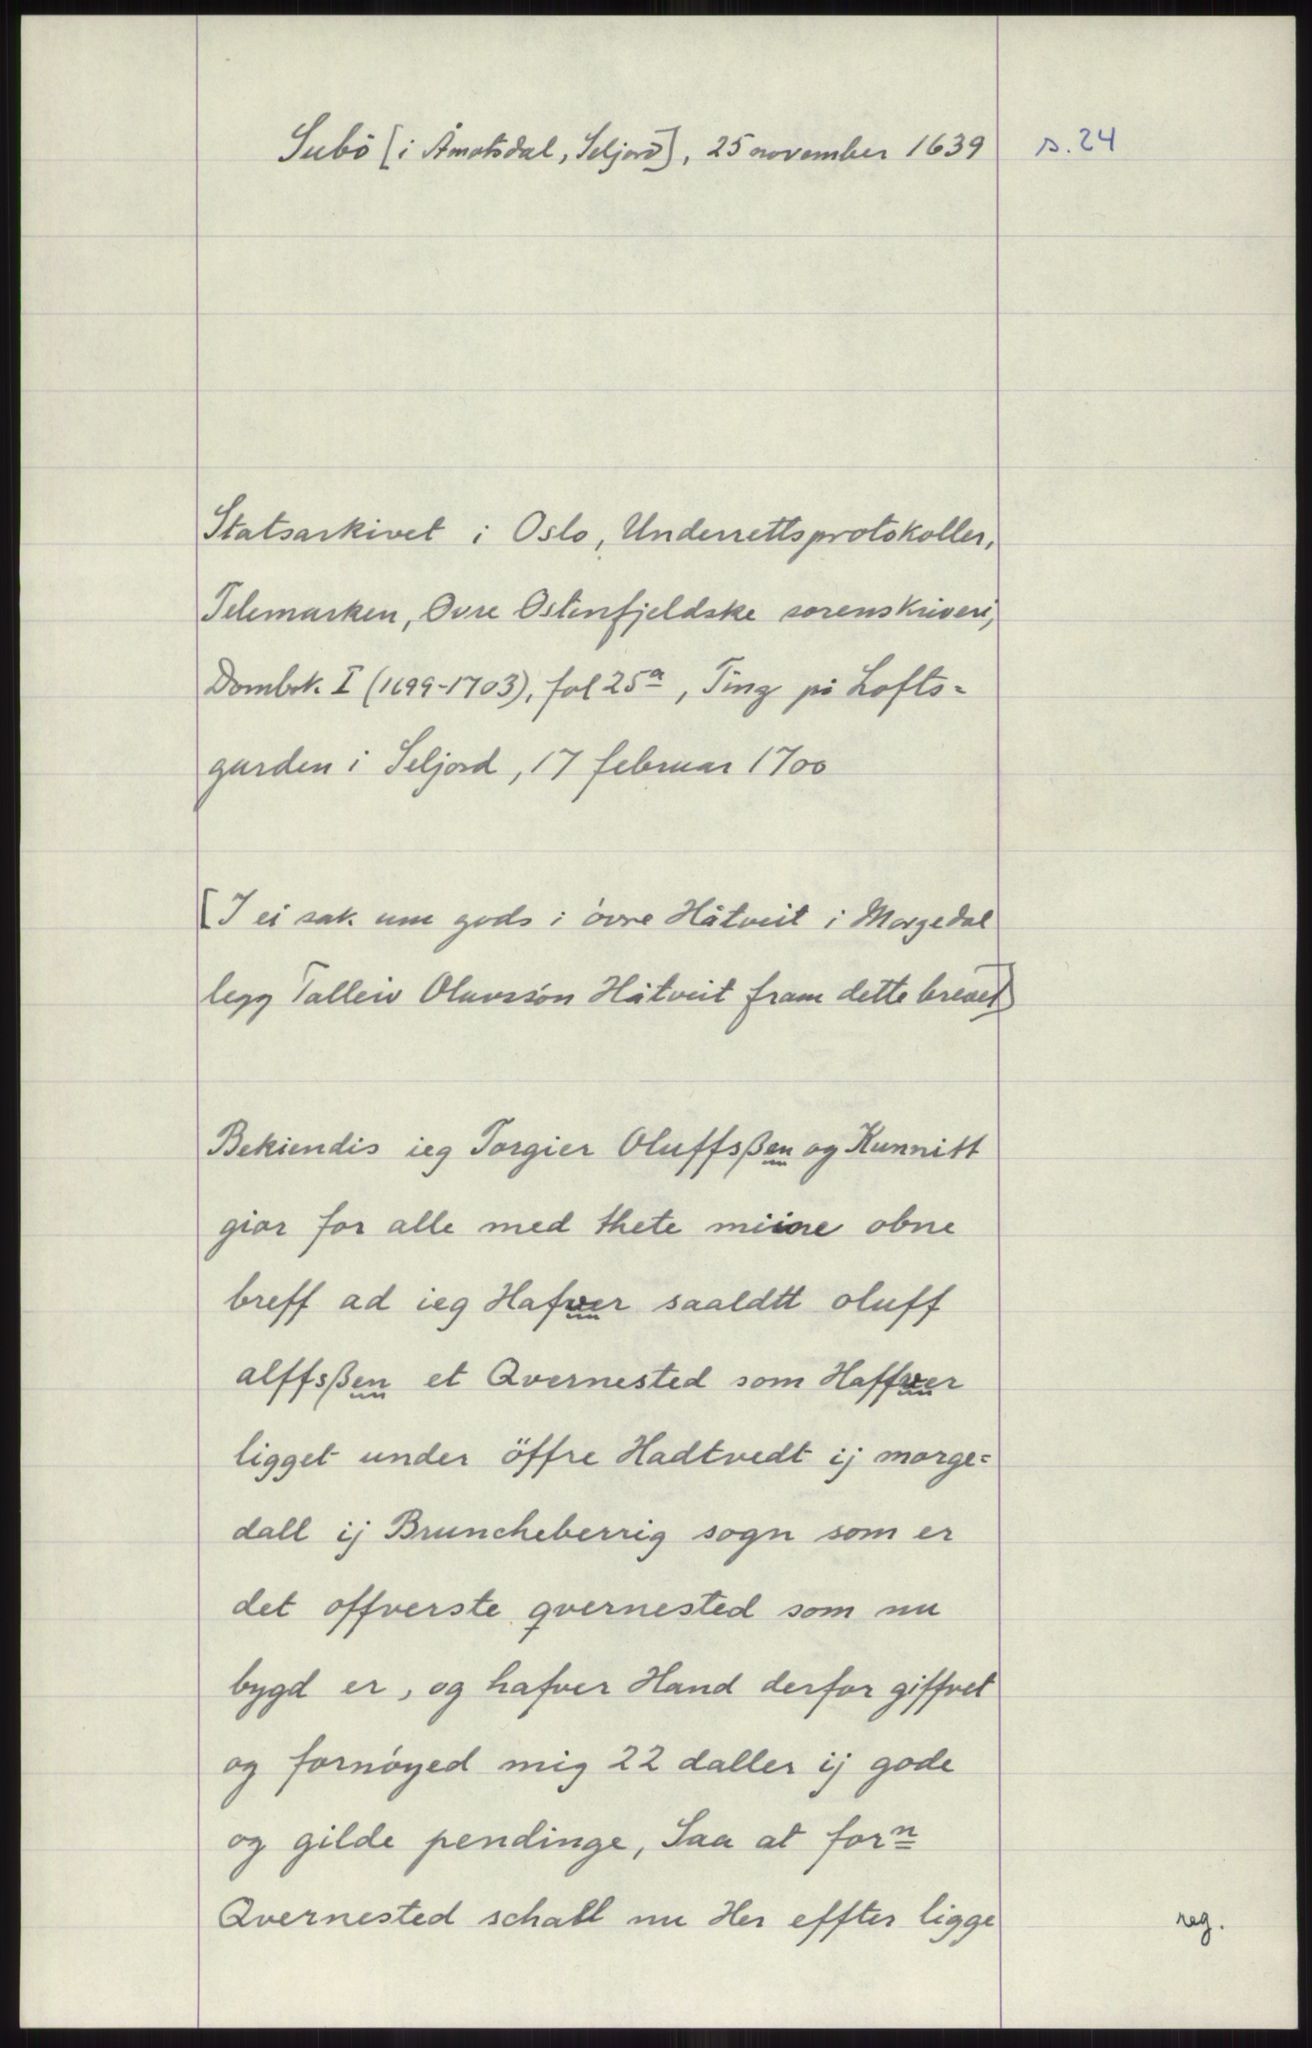 Subö [i Åmotsdal, Seljord], 25 november 1639
s. 24
Statsarkivet i Oslo, Underrettsprotokoller,
Telemarken, Øvre Østenfjeldske sorenskriveri,
Dombok I (1699-1703), fol 25a, Ting på Lofts=
garden i Seljord, 17 februar 1700
[I ei sak um gods i övre Håtveit i Morgedal
legg Talleiv Olavssön Håtveit fram dette brevet]
Bekiendis ieg Torgier Oluffsßen og Kunnitt
giør for alle med thete miine obne
breff ad ieg Hafver saaldtt oluff
alffsßen et Qvernested som Haffver
ligget under öffre Hadtvedt ij morge=
dall ij Bruncheberrig sogn som er
det offverste qvernested som nu
bygd er, og hafver Hand derfor giffvet
og fornöyed mig 22 daller ij gode
og gilde pendinge, Saa at forn
Qvernested schall nu Her effter ligge
reg.